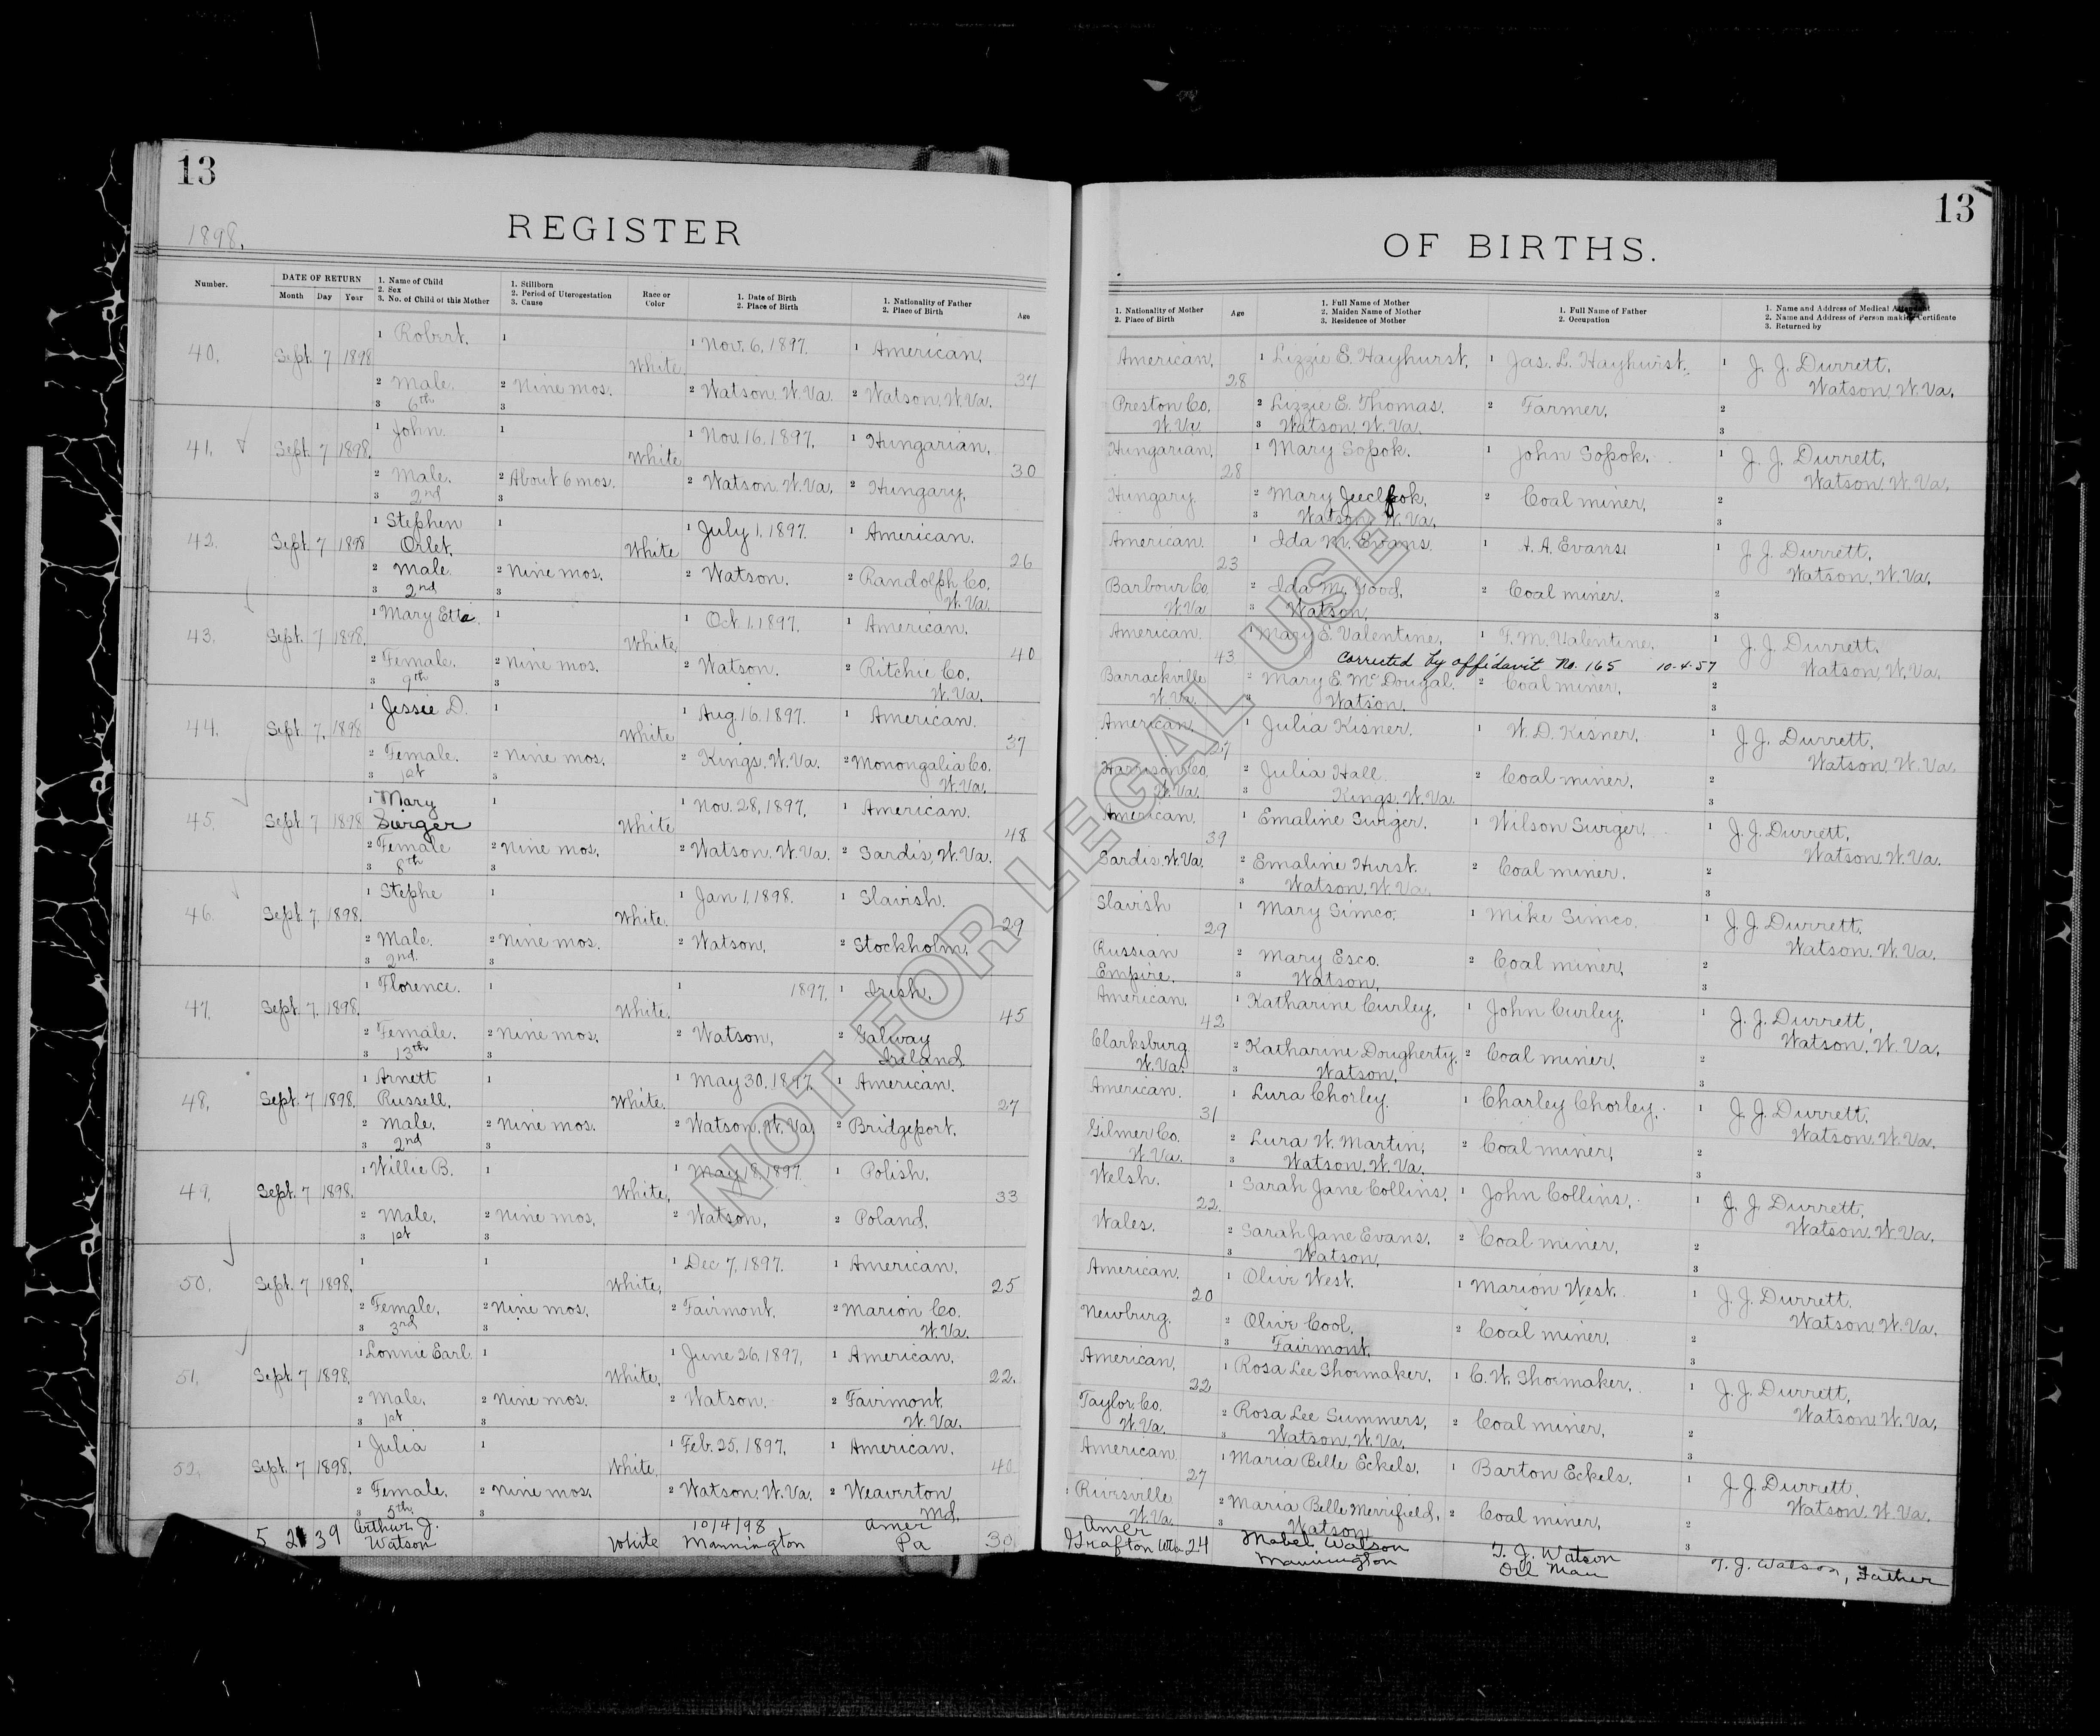 13
1898.
REGISTER
Number.
DATE OF RETURN
Month Day Year
1. Name of Child
2. Sex
3. No. of Child of this Mother
1. Stillborn
2. Period of Uterogestation
3. Cause
Race or
Color
1. Date of Birth
2. Place of Birth
1. Nationality of Father
2. Place of Birth
Age
40. Sept. 7 1898 1 Robert. 1 White 1 Nov. 6, 1897. 1 American. 34
2 Male. 2 Nine mos. 2 Watson. W. Va. 2 Watson, W. Va.
3 6th 3
41. Sept. 7 1898. 1 John. 1 White 1 Nov. 16, 1897. 1 Hungarian. 30
2 Male. 2 About 6 mos. 2 Watson. W. Va. 2 Hungary.
3 2nd 3
42. Sept. 7 1898 1 Stephen 1 White 1 July 1, 1897. 1 American. 26
Orlet.
2 Male. 2 Nine mos. 2 Watson. 2 Randolph Co.
3 2nd 3 W. Va.
43. Sept. 7 1898. 1 Mary Etta. 1 White 1 Oct. 1, 1897. 1 American. 40
2 Female. 2 Nine mos. 2 Watson. 2 Ritchie Co.
3 9th 3 W. Va.
44. Sept. 7, 1898 1 Jessie D. 1 White 1 Aug. 16, 1897. 1 American. 37
2 Female. 2 Nine mos. 2 Kings, W. Va. 2 Monongalia Co.
3 1st 3 W. Va.
45. Sept. 7 1898 1 Mary 1 White 1 Nov. 28, 1897. 1 American. 48
Surger
2 Female 2 Nine mos. 2 Watson. W. Va. 2 Sardis, W. Va.
3 8th 3
46. Sept. 7, 1898. 1 Stephe 1 White. 1 Jan 1, 1898. 1 Slavish. 29
2 Male. 2 Nine mos. 2 Watson, 2 Stockholm,
3 2nd. 3
47. Sept. 7, 1898. 1 Florence. 1 White. 1 1897. 1 Irish. 45
2 Female. 2 Nine mos. 2 Watson, 2 Galway
3 13th 3 Ireland.
48. Sept. 7 1898. 1 Arnett 1 White. 1 May 30, 1897 1 American. 27
Russell.
2 Male. 2 Nine mos. 2 Watson, W. Va. 2 Bridgeport.
3 2nd 3
49. Sept. 7 1898. 1 Willie B. 1 White, 1 May 18, 1897. 1 Polish. 33
2 Male. 2 Nine mos. 2 Watson, 2 Poland.
3 1st 3
50. Sept. 7 1898. 1 1 White, 1 Dec 7, 1897. 1 American. 25
2 Female. 2 Nine mos. 2 Fairmont. 2 Marion Co.
3 3rd 3 W. Va.
51. Sept. 7 1898. 1 Lonnie Earl. 1 White, 1 June 26, 1897, 1 American. 22.
2 Male. 2 Nine mos. 2 Watson. 2 Fairmont.
3 1st 3 W. Va.
52. Sept. 7 1898. 1 Julia 1 White, 1 Feb. 25, 1897, 1 American. 40
2 Female. 2 Nine mos. 2 Watson. W. Va. 2 Weaverton
3 5th 3 Md.
5 21 39 Arthur J. White 10/4/98 Amer 30
Watson Mannington Pa
13
OF BIRTHS.
1. Nationality of Mother
2. Place of Birth
Age
1. Full Name of Mother
2. Maiden Name of Mother
3. Residence of Mother
1. Full Name of Father
2. Occupation
1. Name and Address of Medical Attendant
2. Name and Address of Person making Certificate
3. Returned by
American. 28 1 Lizzie E. Hayhurst. 1 Jas. L. Hayhurst. 1 J. J. Durrett.
Watson, W. Va.
Preston Co. 2 Lizzie E. Thomas. 2 Farmer. 2
W. Va. 3 Watson, W. Va. 3
Hungarian. 28 1 Mary Sopok. 1 John Sopok. 1 J. J. Durrett.
Watson, W. Va.
Hungary. 2 Mary 2 Coal miner. 2
3 Watson, W. Va. 3
American. 23 1 Ida M. Evans. 1 A. A. Evans. 1 J. J. Durrett,
Watson, W. Va.
Barbour Co. 2 Ida M. Good. 2 Coal miner. 2
W. Va. 3 Watson. 3
American. 43 1 Mary E. Valentine. 1 F. M. Valentine. 1 J. J. Durrett.
Corrected by affidavit No. 165 10-4-57 Watson, W. Va.
Barrackville 2 Mary E. McDougal. 2 Coal miner. 2
W. Va. 3 Watson. 3
American. 27 1 Julia Kisner. 1 W. D. Kisner. 1 J. J. Durrett.
Watson, W. Va.
Harrison Co. 2 Julia Hall. 2 Coal miner. 2
W. Va. 3 Kings, W. Va. 3
American. 39 1 Emaline Surger. 1 Wilson Surger. 1 J. J. Durrett.
Watson, W. Va.
Sardis, W. Va. 2 Emaline Hurst. 2 Coal miner. 2
3 Watson, W. Va. 3
Slavish 29 1 Mary Simco. 1 Mike Simco. 1 J. J. Durrett.
Watson, W. Va.
Russian 2 Mary Esco. 2 Coal miner. 2
Empire. 3 Watson, 3
American. 42 1 Katharine Curley. 1 John Curley. 1 J. J. Durrett,
Watson, W. Va.
Clarksburg 2 Katharine Dougherty. 2 Coal miner. 2
W. Va. 3 Watson. 3
American. 31 1 Lura Chorley. 1 Charley Chorley. 1 J. J. Durrett.
Watson, W. Va.
Gilmer Co. 2 Lura W. Martin, 2 Coal miner, 2
W. Va. 3 Watson, W. Va. 3
Welsh. 22 1 Sarah Jane Collins. 1 John Collins. 1 J. J. Durrett.
Watson, W. Va.
Wales. 2 Sarah Jane Evans. 2 Coal miner. 2
3 Watson. 3
American. 20 1 Olive West. 1 Marion West. 1 J. J. Durrett.
Watson, W. Va.
Newburg. 2 Olive Cool. 2 Coal miner. 2
3 Fairmont. 3
American. 22 1 Rosa Lee Shoemaker. 1 C. W. Shoemaker. 1 J. J. Durrett,
Watson, W. Va.
Taylor Co. 2 Rosa Lee Summers, 2 Coal miner. 2
W. Va. 3 Watson, W. Va. 3
American. 27 1 Maria Belle Eckels. 1 Barton Eckels. 1 J. J. Durrett.
Watson, W. Va.
Rivesville 2 Maria Belle Merrifield. 2 Coal miner. 2
W. Va. 3 Watson 3
Amer 24 Mabel Watson T. J. Watson T. J. Watson, Father
Grafton Mannington Oil Man
NOT FOR LEGAL USE